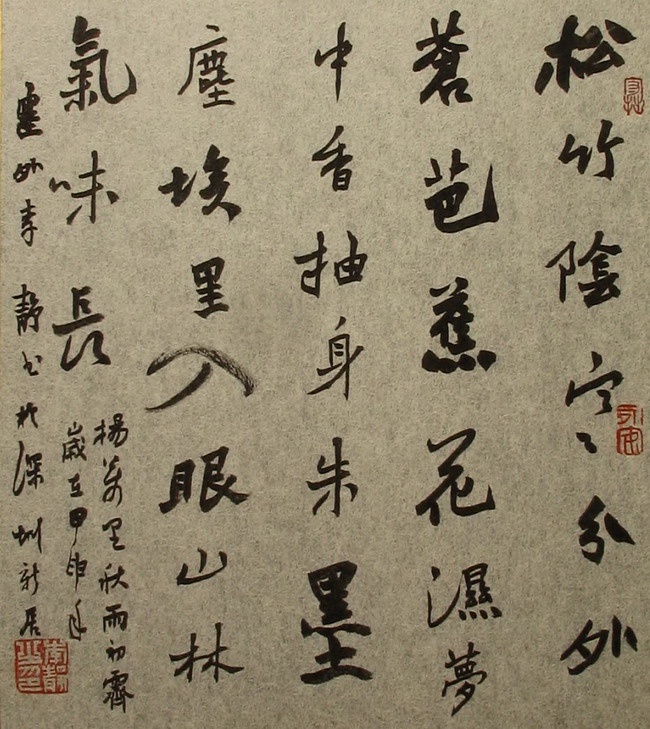 松竹陰寒分外
蒼芭蕉花濕夢
中香抽身朱墨
塵埃里入眼山林
氣味長
楊萬里秋雨初霽
歲在甲申年
李靜书於深圳新居